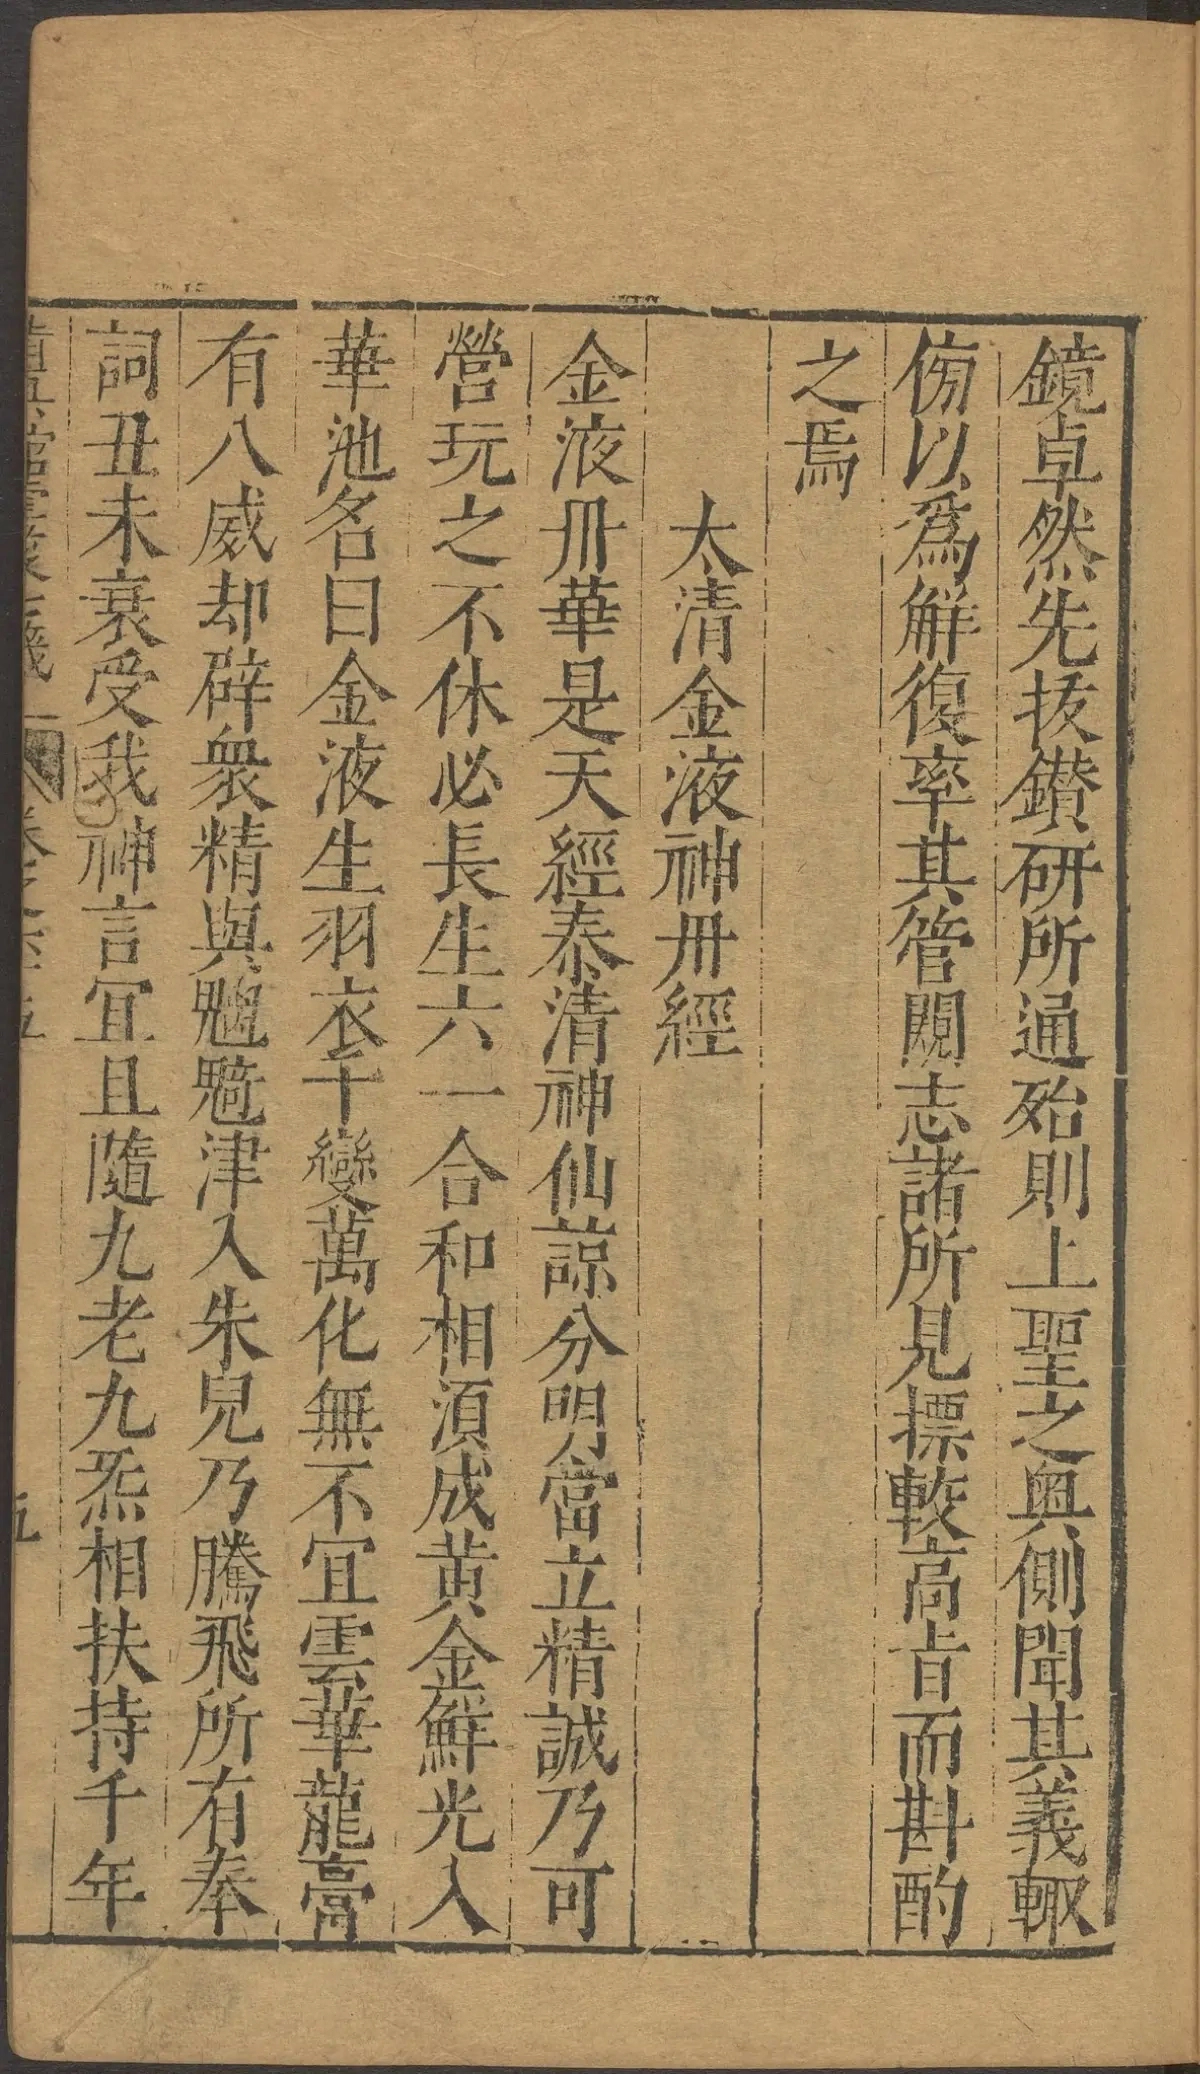 鏡卓然先拔鑚研所通殆則上聖之奧側聞其義輙
傍以爲觧復率其管闚志諸所見摽較高㫖而斟酌
之焉
太清金液神丹經
金液丹華是天經泰清神仙諒分明當立精誠乃可
營玩之不休必長生六一合和相湏成黄金鮮光入
華池名曰金液生羽衣千變萬化無不宜雲華龍膏
有八威却辟衆精與魑魅津入朱兒乃騰飛所有奉
詞丑未衰受我神言宜且隨九老九炁相扶持千年